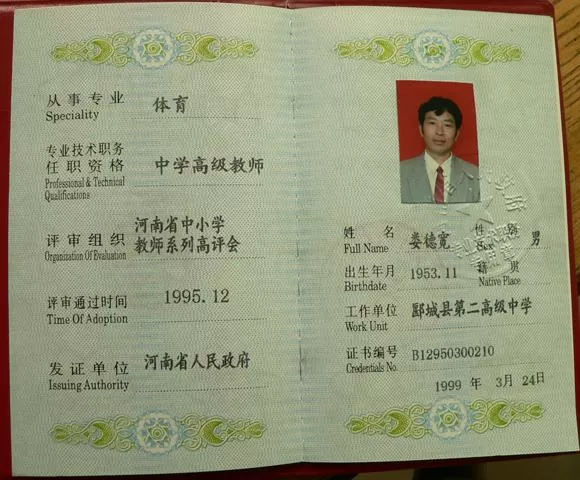 从事专业 体育
Speciality
专业技术职务
任职资格 中学高级教师
Professional & Technical
Qualifications
河南省中小学
评审组织 教师系列高评会
Organization Of Evaluation
评审通过时间 1995.12
Time Of Adoption
发证单位 河南省人民政府
Issuing Authority
姓名 娄德宽 性别 男
Full Name Sex
出生年月 1953.11 籍贯
Birthdate Native Place
工作单位 郾城县第二高级中学
Work Unit
证书编号 B12950300210
Credentials No.
1999 年 3月 24日